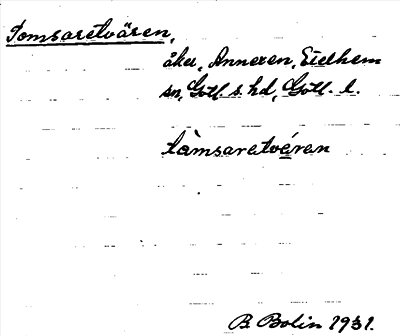 Tomsaretvären,
åker, Annexen, Eielhem
sn, Gotl. s. hd, Gotl. l.
tàmsaretvéren
B. Bolin 1931.